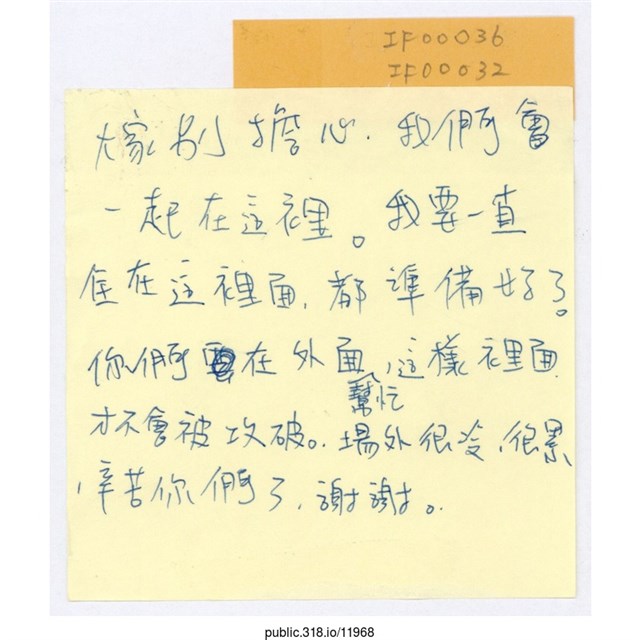 IF00036
IF00032
大家別擔心，我們會
一起在這裡。我要一直
住在這裡面，都準備好了。
你們要在外面，這樣裡面
幫忙
才不會被攻破。場外很冷，很累
辛苦你們了，謝謝。
public.318.io/11968